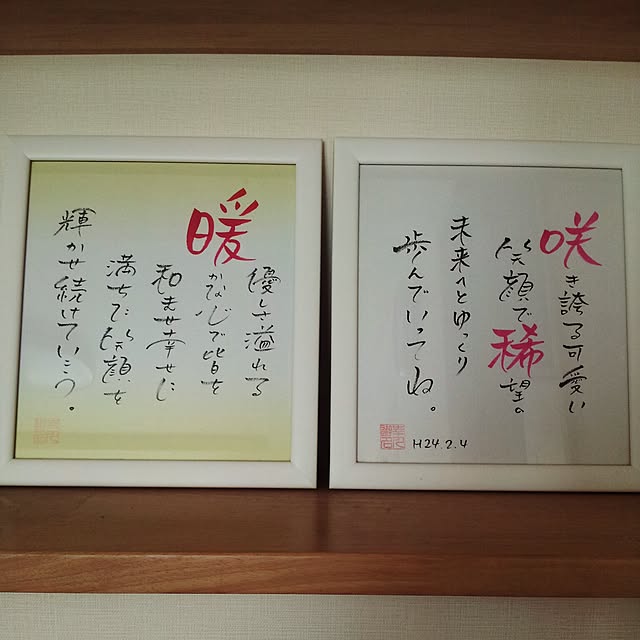 優しさ溢れる
暖かな心で皆を
和ませ幸せに
満ちた笑顔を
輝かせ続けていこう。
咲き誇る可愛い
笑顔で稀望の
未来へとゆっくり
歩んでいってね。
H24.2.4